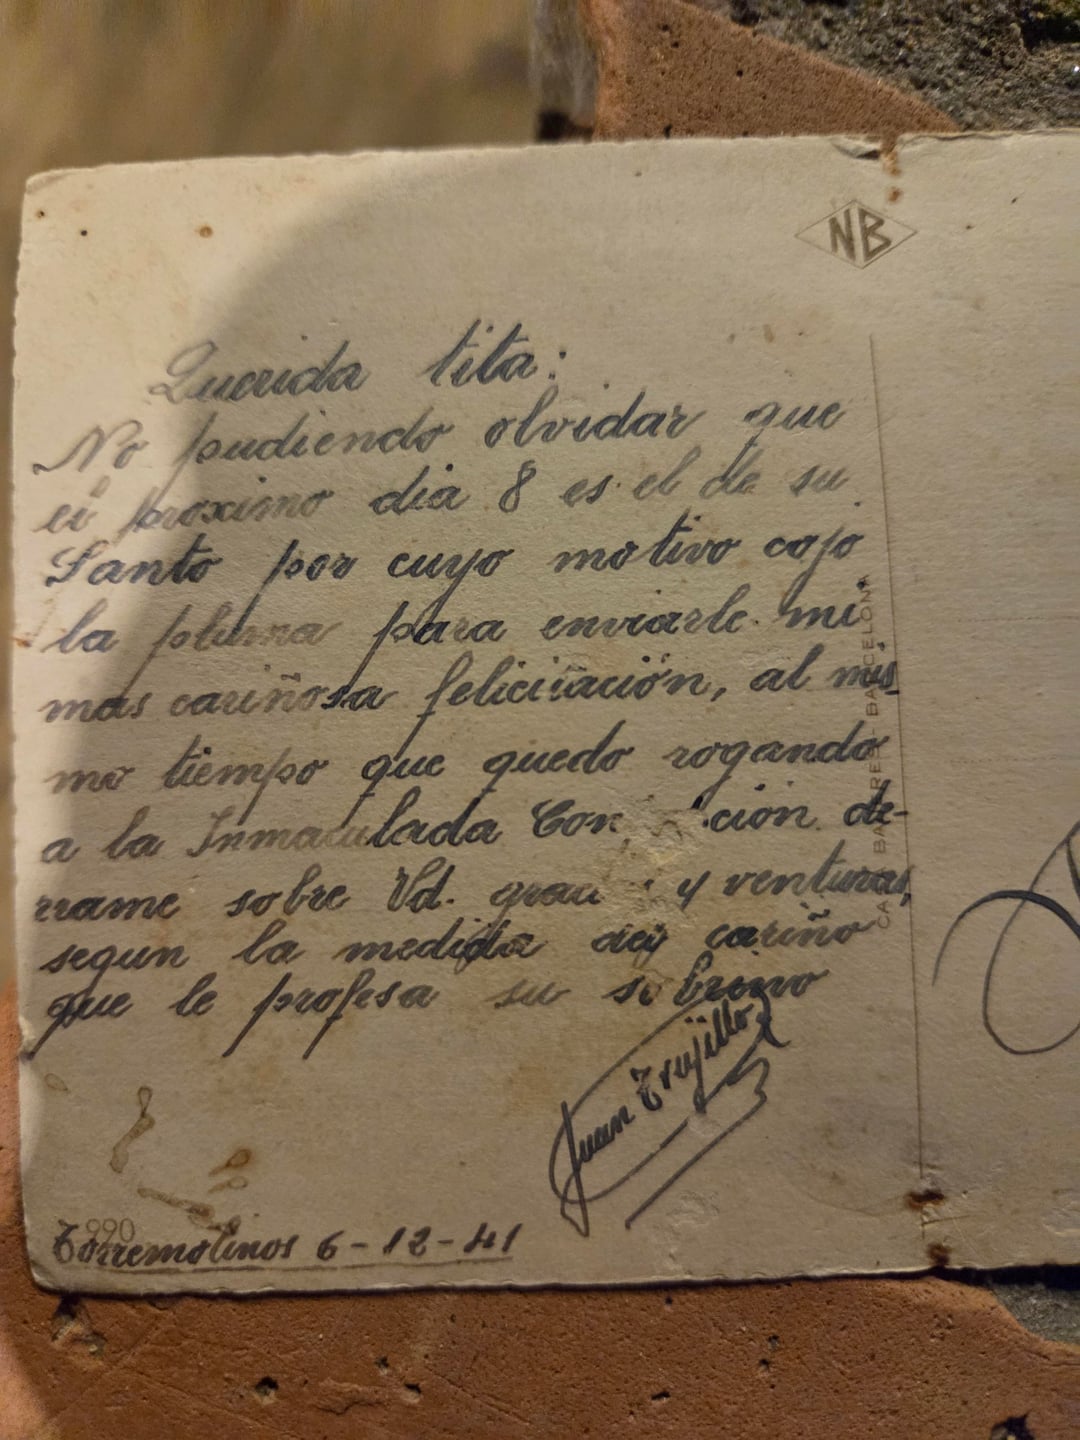 NB
Querida tita:
No pudiendo olvidar que
el proximo dia 8 es el de su
Santo por cuyo motivo cojo
la pluma para enviarle mi
mas cariñosa felicitación, al mis
mo tiempo que quedo rogando
a la Inmaculada Con ción de-
rrame sobre Vd. y venturas,
segun la medida del cariño
que le profesa su sobrino
Juan Trujillo
990
Torremolinos 6-12-41
BARCELONA